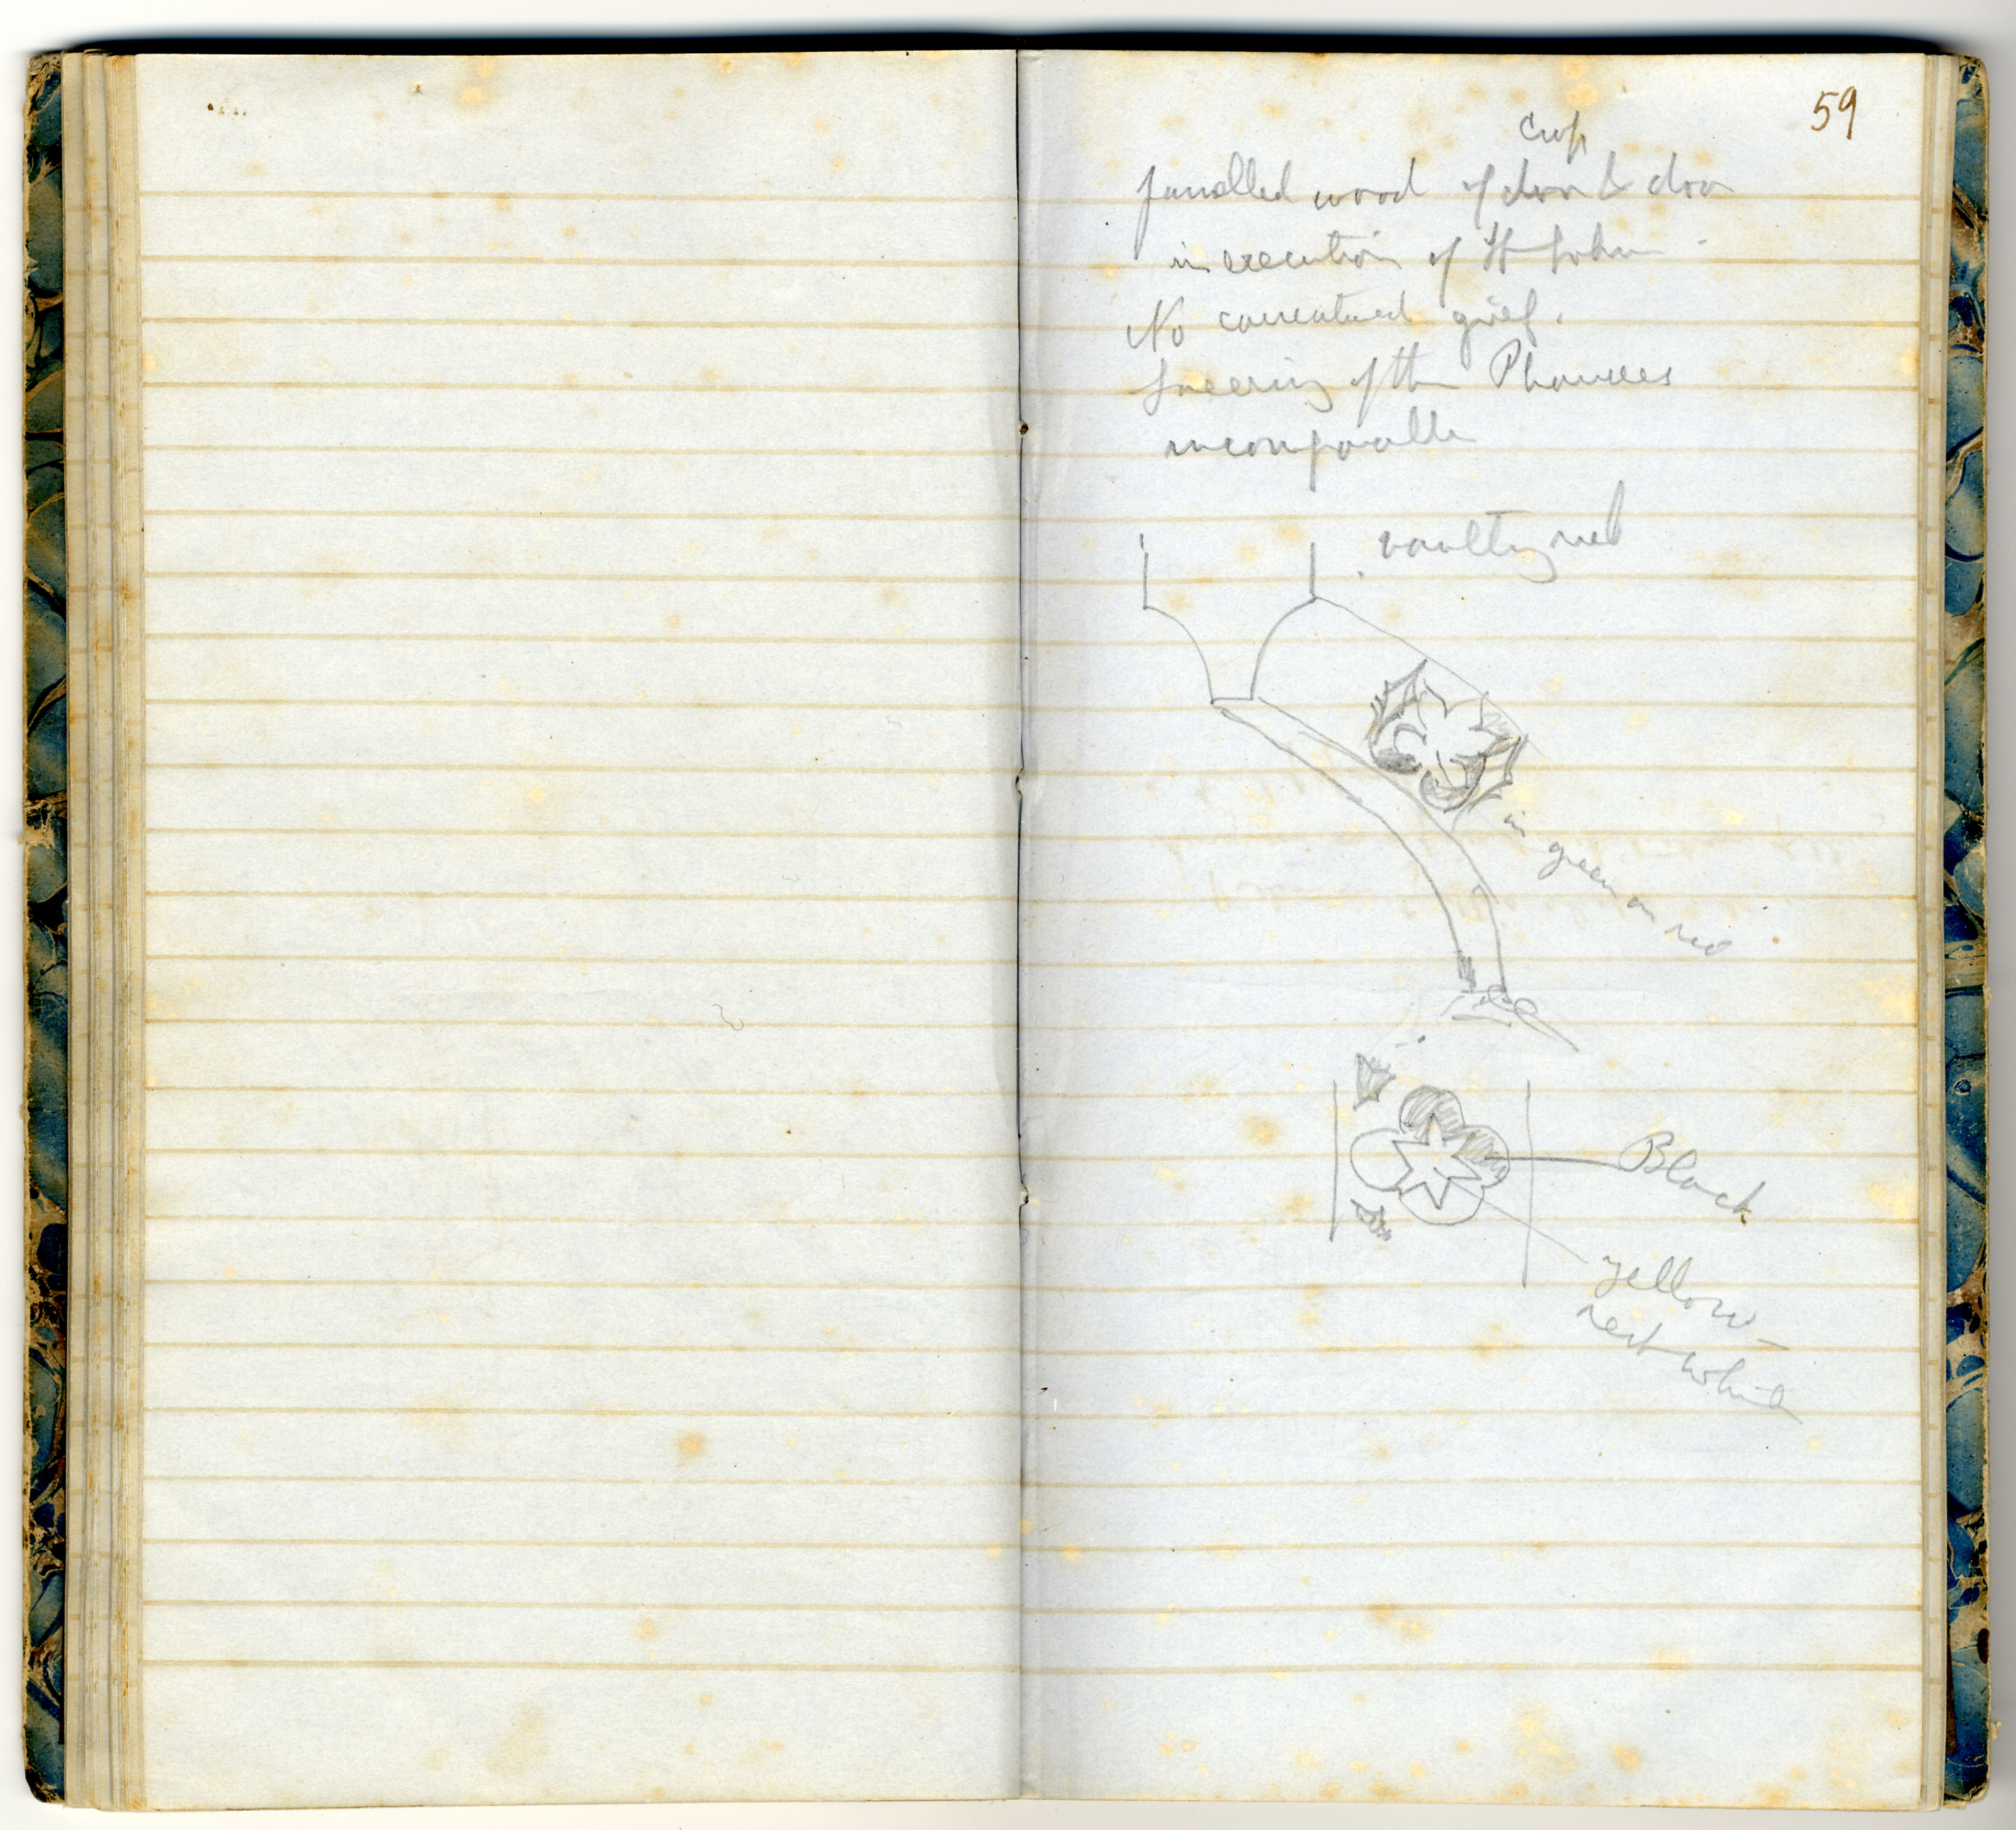 59
cup
panelled wood of door & door
in execution of St John.
No caricatured grief.
Sneering of the Pharisees
incomparable
vaulting rib
in green on red
Black
yellow –
rest white